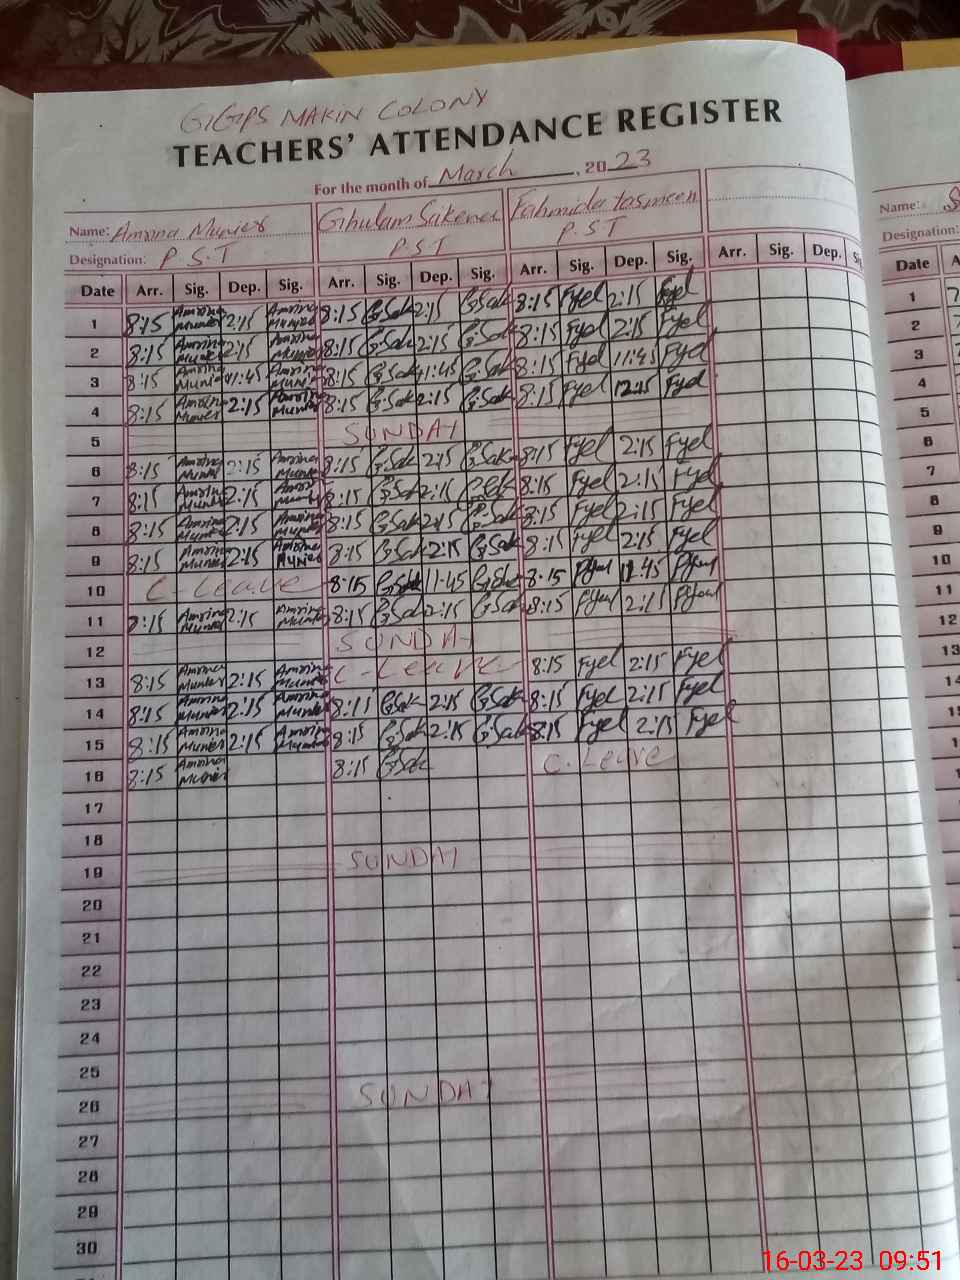 GGPS MAKIN COLONY
TEACHERS' ATTENDANCE REGISTER
For the month of March, 2023
Name: Amna Munier Ghulam Sakena Fahmida tasmeen Name: S
Designation: P.S.T P.S.T P.S.T Designation:
Date Arr. Sig. Dep. Sig. Arr. Sig. Dep. Sig. Arr. Sig. Dep. Sig. Arr. Sig. Dep. Date A
1 8:15 Amna Munier 2:15 Amna Munier 8:15 GSak 2:15 GSak 8:15 Fyel 2:15 Fyel 1
2 8:15 Amna Munier 2:15 Amna Munier 8:15 GSak 2:15 GSak 8:15 Fyel 2:15 Fyel 2
3 8:15 Amna Munier 11:45 Amna Munier 8:15 GSak 11:45 GSak 8:15 Fyel 11:45 Fyel 3
4 8:15 Amna Munier 2:15 Amna Munier 8:15 GSak 2:15 GSak 8:15 Fyel 12:15 Fyel 4
5 SUNDAY 5
6 8:15 Amna Munier 2:15 Amna Munier 8:15 GSak 2:15 GSak 8:15 Fyel 2:15 Fyel 6
7 8:15 Amna Munier 2:15 Amna Munier 8:15 GSak 2:15 8:15 Fyel 2:15 Fyel 7
8 8:15 Amna Munier 2:15 Amna Munier 8:15 GSak 2:15 GSak 8:15 Fyel 2:15 Fyel 8
9 8:15 Amna Munier 2:15 Amna Munier 8:15 GSak 2:15 GSak 8:15 Fyel 2:15 Fyel 9
10 C-Leave 8:15 GSak 11:45 GSak 8:15 11:45 10
11 8:15 Amna Munier 2:15 Amna Munier 8:15 GSak 2:15 GSak 8:15 2:15 11
12 SUNDAY 12
13 8:15 Amna Munier 2:15 Amna Munier C-Leave 8:15 Fyel 2:15 Fyel 13
14 8:15 Amna Munier 2:15 Amna Munier 8:15 GSak 2:15 GSak 8:15 Fyel 2:15 Fyel 14
15 8:15 Amna Munier 2:15 Amna Munier 8:15 GSak 2:15 GSak 8:15 Fyel 2:15 Fyel
16 8:15 Amna Munier 8:15 GSak C.Leave
17
18
19 SUNDAY
20
21
22
23
24
25
26 SUNDAY
27
28
29
30
16-03-23 09:51